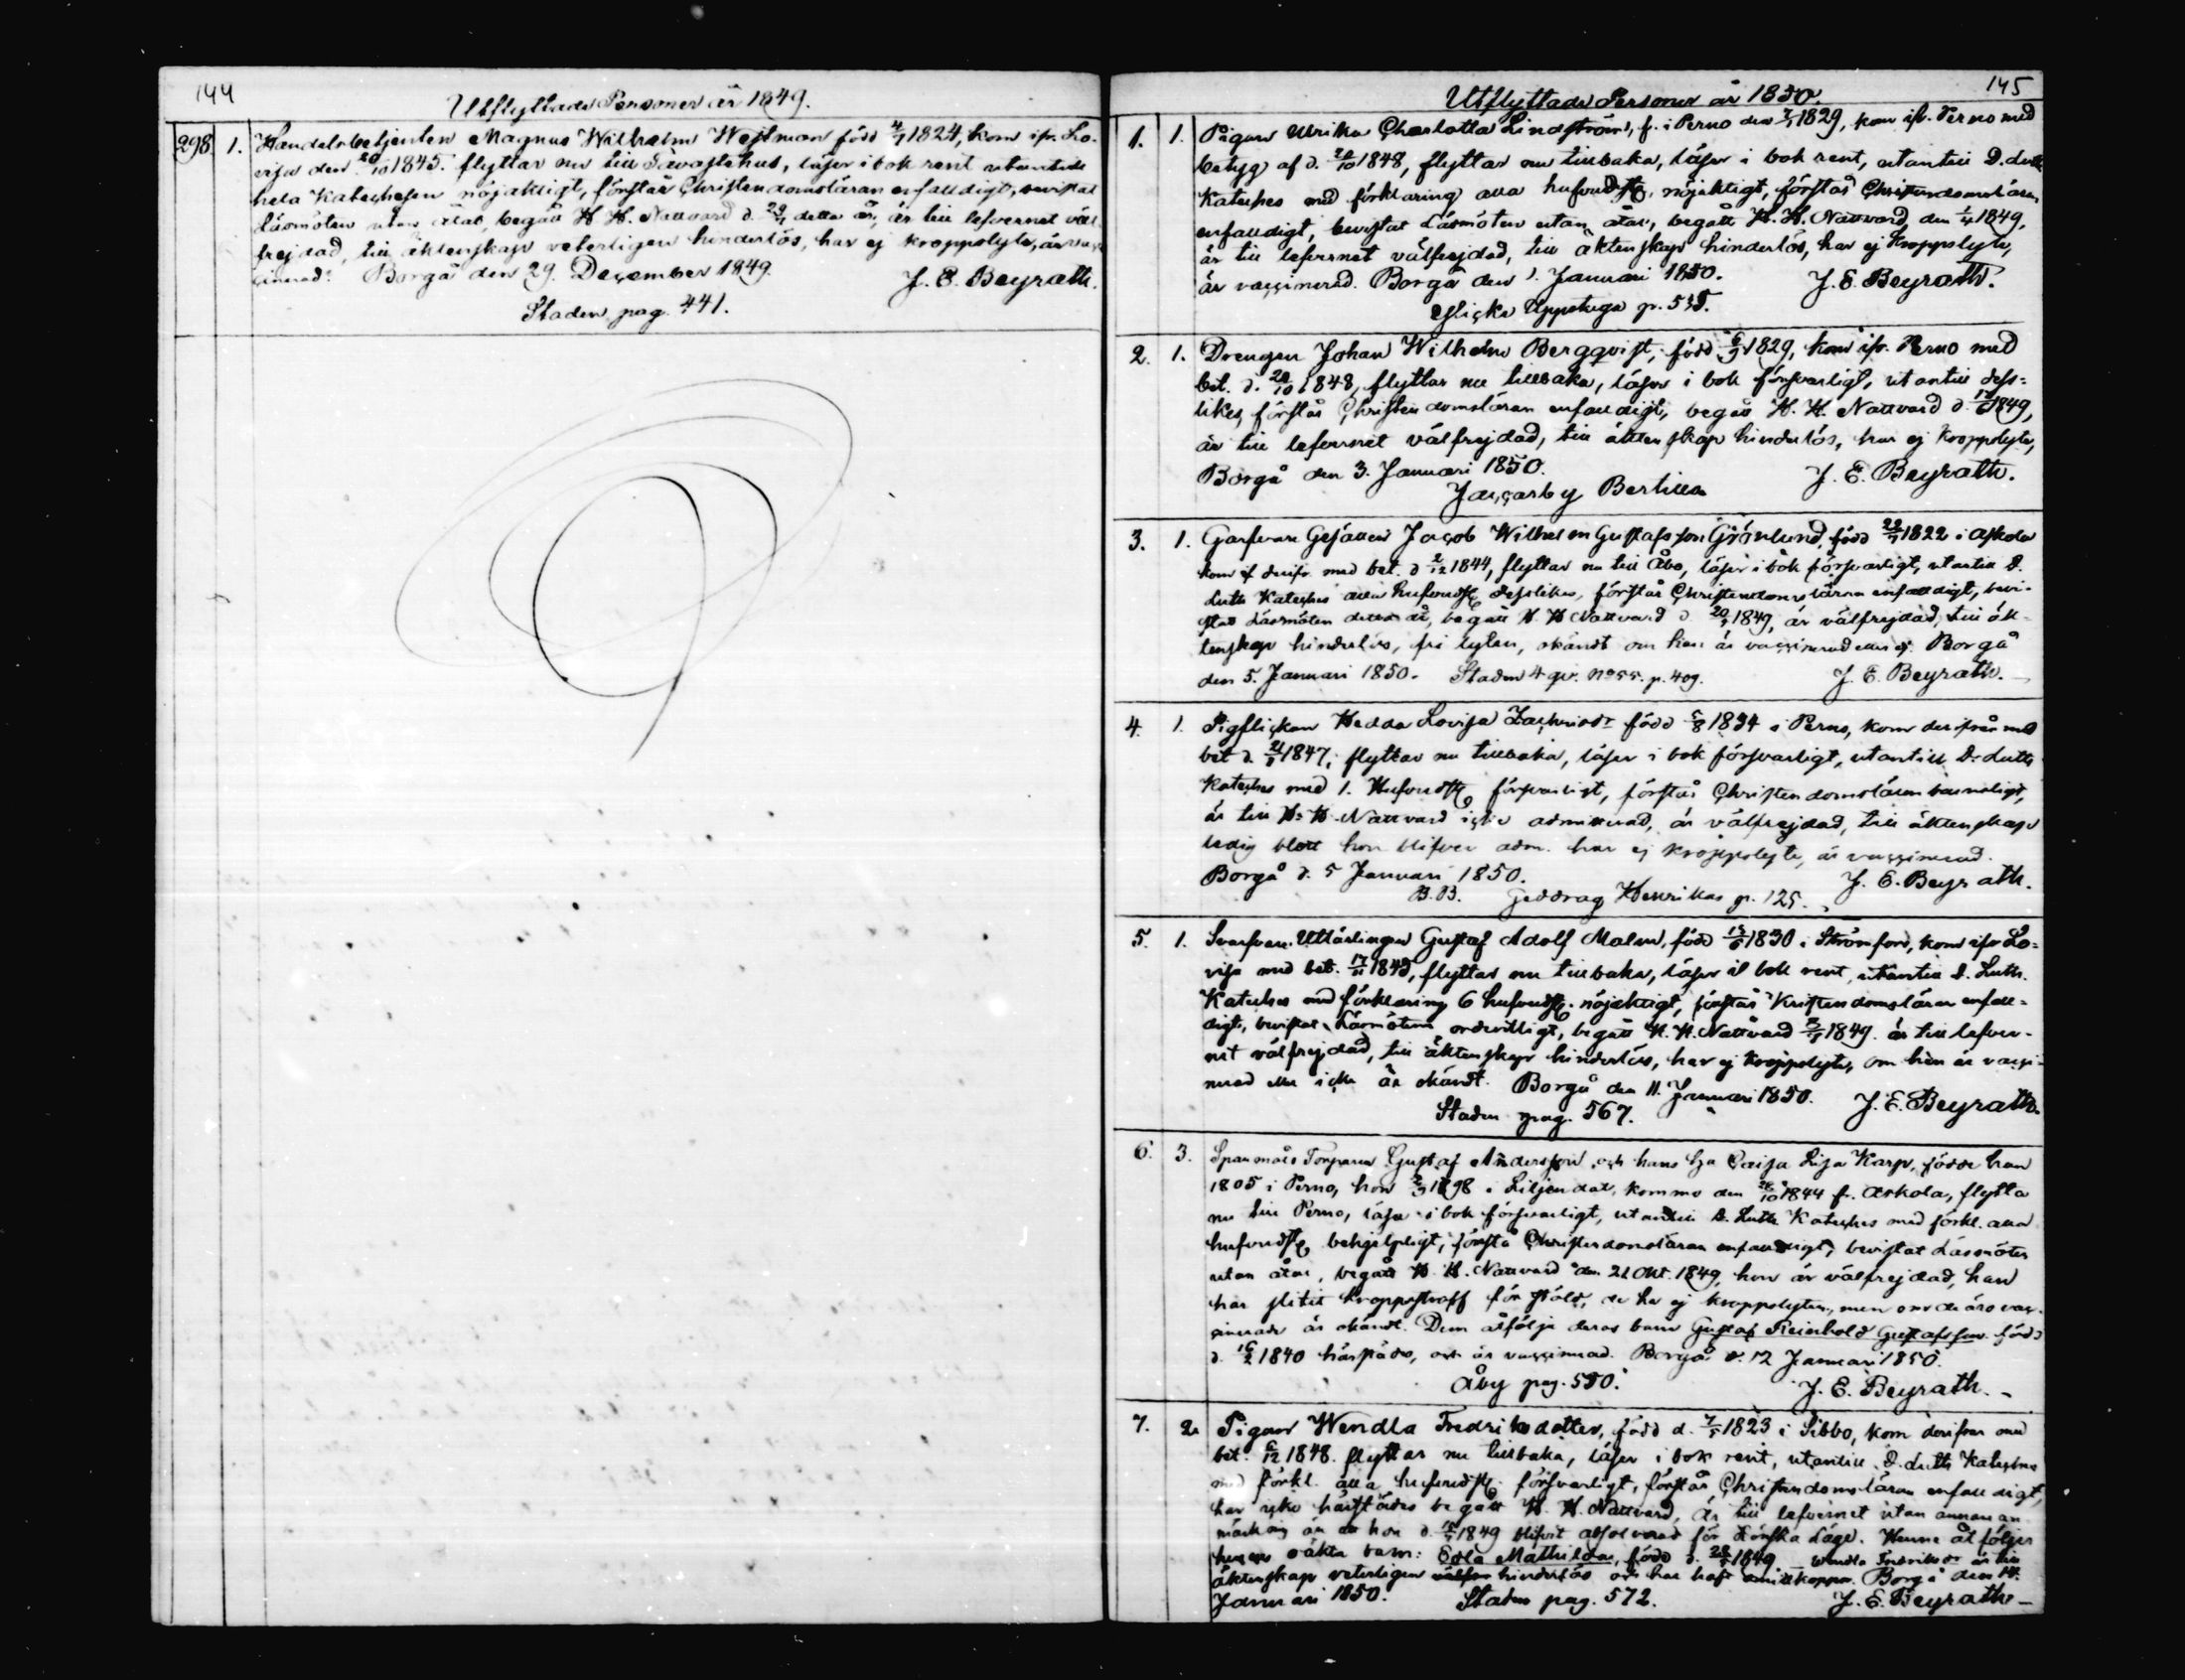 144
Utflyttade Personer år 1849.
298. 1. Handelsbetjenten Magnus Wilhelm Westman född 4/7 1824, kom ifr. Lo-
visa den 20/10 1845. flyttar nu till Tavastehus, läser i bok rent utantill
hela Katechesen nöjaktigt, förstår Christendomsläran enfalldigt, bevistat
Läsmöten utan åtal, begått H. H. Nattvard d. 29/ detta år, är till lefvernet väl
frejdad, till äktenskap veterligen hinderlös, har ej kroppslyte, är vac-
cinerad. Borgå den 29. December 1849. J. E. Beyrath.
Staden pag. 441.
145
Utflyttade Personer år 1850.
1. 1. Pigan Ulrika Charlotta Lindström, f. i Perno den 1829, kom ifr. Perno med
betyg af d. 20/10 1848, flyttar nu tillbaka, läser i bok rent, utantill D. Luth
Kateches med förklaring alla hufvudst. nöjaktigt, förstår Christendomsläran
enfalldigt, bevistat Läsmöten utan åtal, begått H. H. Nattvard den 1849,
är till lefvernet välfrejdad, till äktenskap hinderlös, har ej kroppslyte,
är vaccinerad. Borgå den 1. Januari 1850. J. E. Beyrath.
Uppstuga p. 535.
2. 1. Drengen Johan Wilhelm Bergqvist, född 6/9 1829, kom ifr. Perno med
bet. d. 20/10 1848, flyttar nu tillbaka, läser i bok försvarligt, utantill dess=
likes, förstår Christendomsläran enfalldigt, begått H. H. Nattvard d. 17/6 1849,
är till lefvernet välfrejdad, till äktenskap hinderlös, har ej kroppslyte,
Borgå den 3. Januari 1850. J. E. Beyrath.
Jaccarby Bertills
3. 1. Garfvare Gesällen Jacob Wilhelm Gustafsson Grönlund, född 22/7 1822 i Askola
kom derifr. med bet. d 2/12 1844, flyttar nu till Åbo, läser i bok försvarligt, utantill D.
Luth Kateches alla hufvudst. desslikes, förstår Christendomsläran enfalldigt, bevi-
stat Läsmöten detta år, begått H. H Nattvard d. 20/ 1849, är välfrejdad, till äk-
tenskap hinderlös, fri lyten, okändt om han är vaccinerad eller ej. Borgå
den 5. Januari 1850. Staden 4 qv. No 55. p. 409. J. E. Beyrath.
4. 1. Pigflickan Hedda Lovisa Zachrisdr född 5/8 1834 i Perno, kom derifrån med
bet d. 1847, flyttar nu tillbaka, läser i bok försvarligt, utantill Dr Luth
Kateches med 1. Hufvudst. försvarligt, förstår Christendomsläran barnsligt,
är till H. H. Nattvard icke admitterad, är välfrejdad, till äktenskap
ledig blott hon blifver adm. har ej kroppslyte, är vaccinerad.
Borgå d. 5 Januari 1850. J. E. Beyrath.
B. B. Geddrag Henrikas p. 125.
5. 1. Svarfvare Utlärlingen Gustaf Adolf Malm, född 13/6 1830 i Strömfors, kom ifr Lo=
visa med bet. 17/11 1845, flyttar nu tillbaka, läser i bok rent, utantill D. Luth.
Kateches med förklaring 6 hufvudst. nöjaktigt, förstår Kristendomsläran enfall=
digt, bevistat Läsmöten ordentligt, begått H. H. Nattvard 1849. är till lefver-
net välfrejdad, till äktenskap hinderlös, har ej kroppslyte, om han är vacci-
nerad eller icke är okändt. Borgå den 11. Januari 1850. J. E. Beyrath.
Staden pag. 567.
6. 3. Spanmåls Torparen Gustaf Andersson och hans h:u Caisa Lisa Karp, födde han
1805 i Perno, hon 1798 i Liljendal, kommo den 28/10 1844 fr. Askola, flytta
nu till Perno, läsa i bok försvarligt, utantill D. Luth Kateches med förkl. alla
hufvudst. behjelpligt, förstå Christendomsläran enfalldigt, bevistat Läsmöten
utan åtal, begått H. H. Nattvard den 21 Okt. 1849, hon är välfrejdad, han
har slitit kroppsstraff för stöld, de ha ej kroppslyten, men om de äro vac-
cinerade är okändt. Dem åtfölja deras barn Gustaf Reinhold Gustafsson född
d. 16/2 1840 härstädes, och är vaccinerad. Borgå d. 12 Januari 1850.
Åby pag. 550. J. E. Beyrath.
7. 2. Pigan Wendla Fredriksdotter, född d. 7/5 1823 i Sibbo, kom derifrån med
bet. 6/12 1848. flyttar nu tillbaka, läser i bok rent, utantill D. Luth Kateches
med förkl. alla hufvudst. försvarligt, förstår Christendomsläran enfalldigt,
har icke härstädes begått H. H. Nattvard, är till lefvernet utan annan an-
märkning än att hon d. 1849 blifvit absolverad för Lönska Läge. Henne åtföljer
hennes oäkta barn: Edla Mathilda, född d. 28/ 1849. Wendla Fredriksdr är till
äktenskap veterligen hinderlös och har haft smittkoppor. Borgå den 14.
Januari 1850. Staden pag. 572. J. E. Beyrath